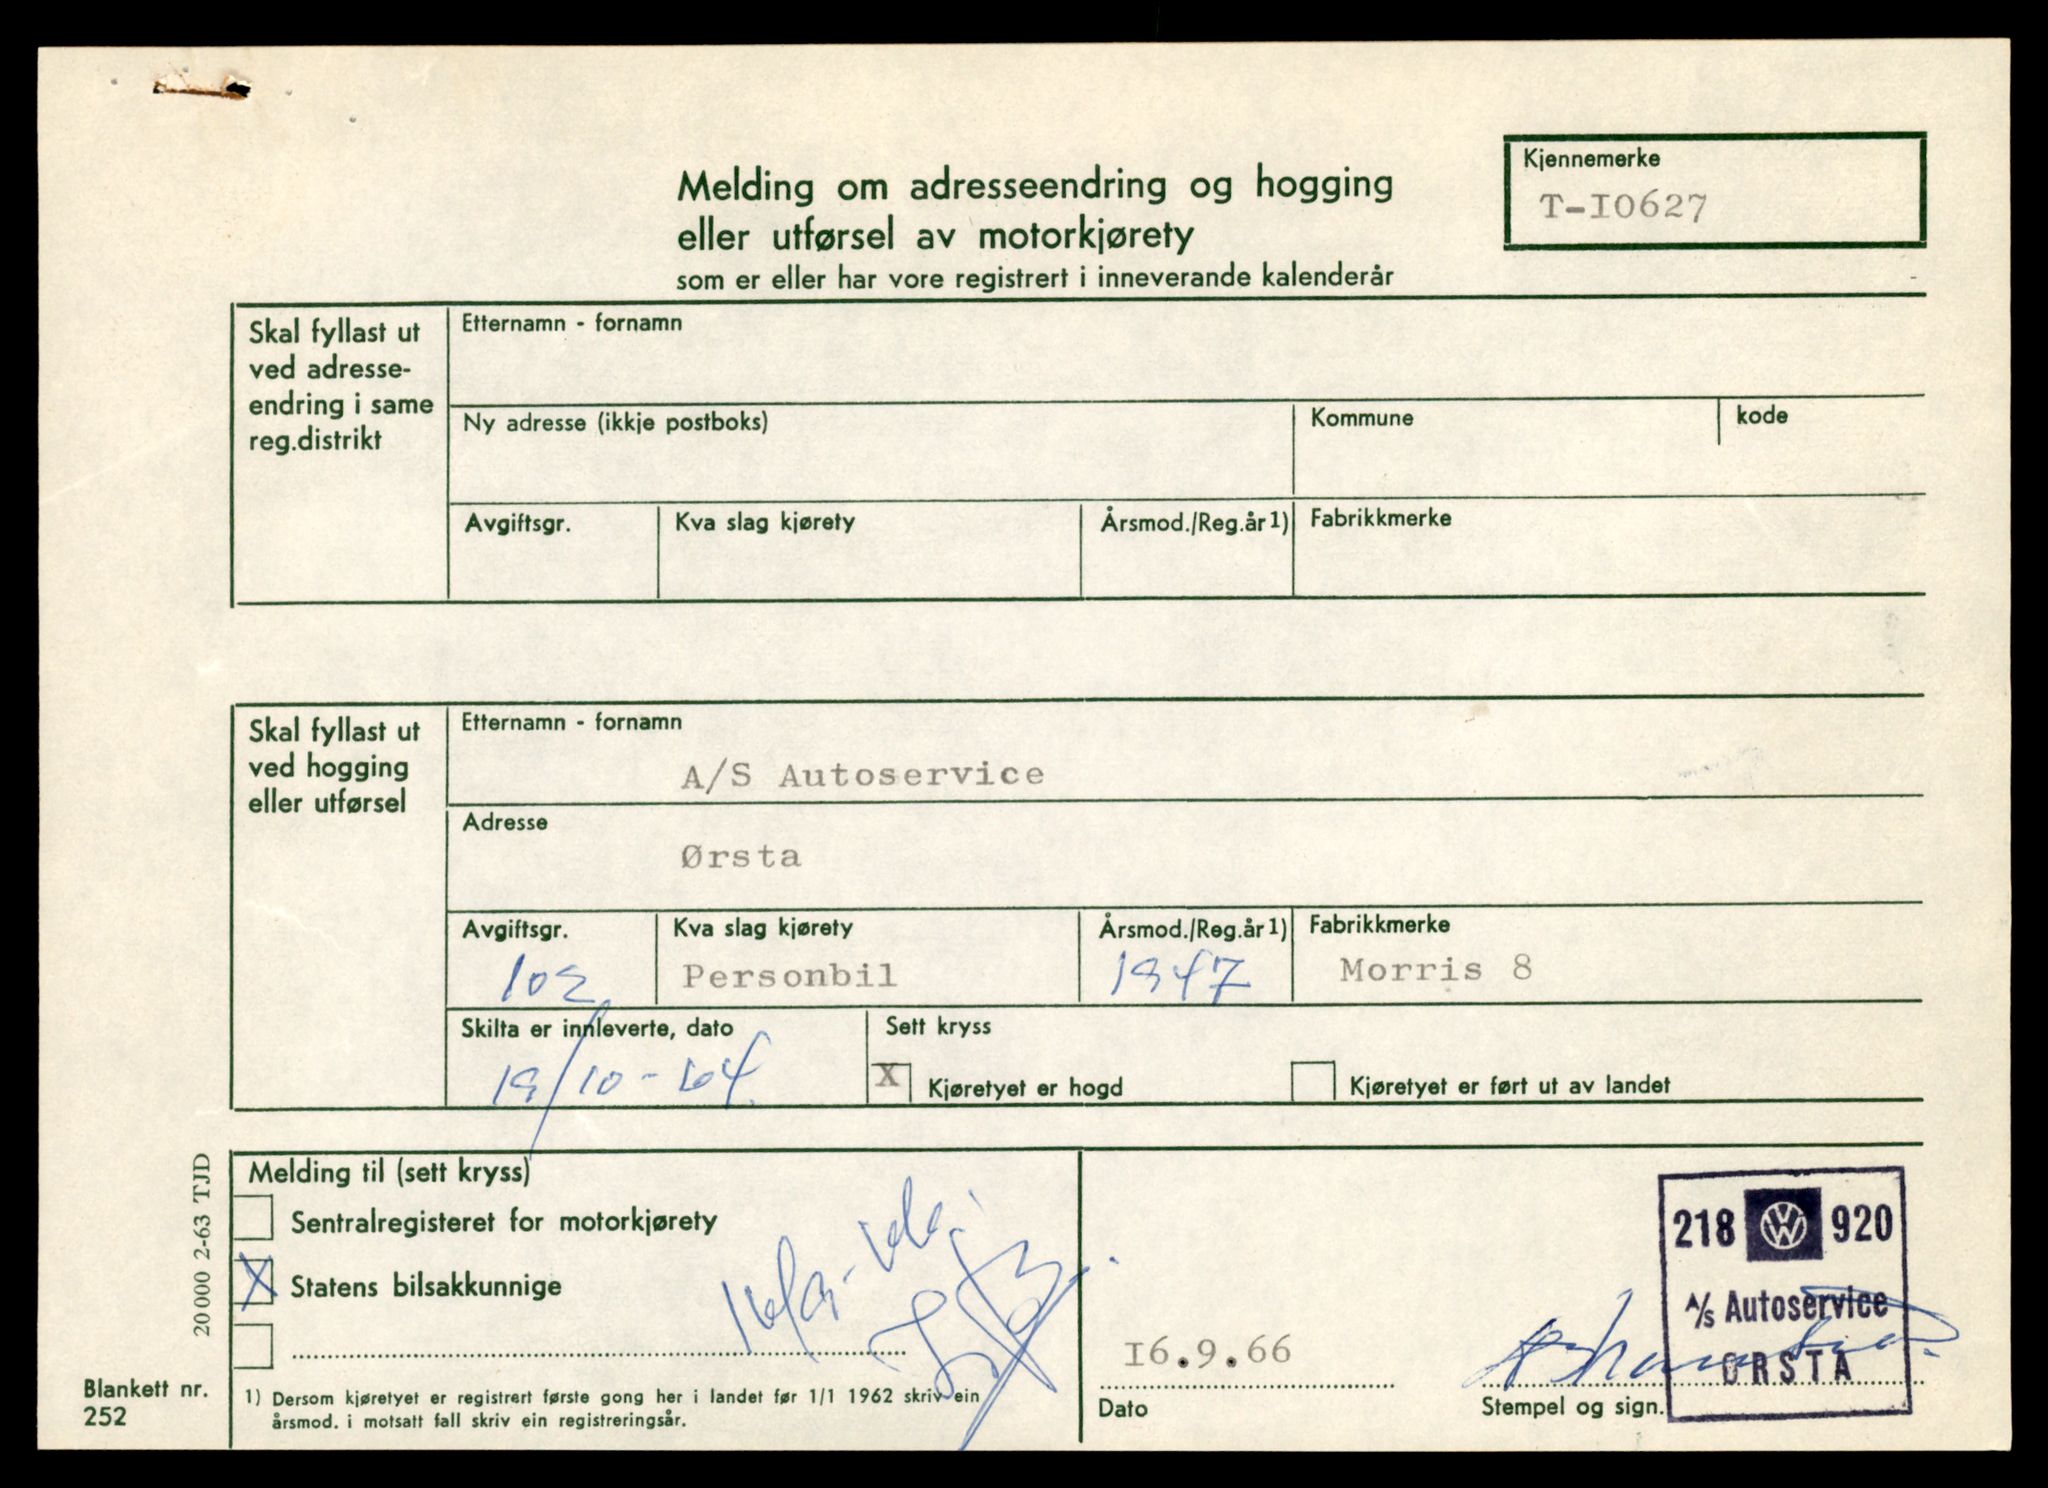 Melding om adresseendring og hogging
eller utførsel av motorkjørety
som er eller har vore registrert i inneverande kalenderår
Kjennemerke
T-I0627
Skal fyllast ut
ved adresse-
endring i same
reg.distrikt
Etternamn - fornamn
Ny adresse (ikkje postboks)
Kommune
kode
Avgiftsgr.
Kva slag kjørety
Årsmod./Reg.år 1)
Fabrikkmerke
Skal fyllast ut
ved hogging
eller utførsel
Etternamn - fornamn
A/S Autoservice
Adresse
Ørsta
Avgiftsgr.
102
Kva slag kjørety
Personbil
Årsmod./Reg.år 1)
1947
Fabrikkmerke
Morris 8
Skilta er innleverte, dato
19/10-64.
Sett kryss
X Kjøretyet er hogd
Kjøretyet er ført ut av landet
Melding til (sett kryss)
Sentralregisteret for motorkjørety
X Statens bilsakkunnige
1) Dersom kjøretyet er registrert første gong her i landet før 1/1 1962 skriv ein
årsmod. i motsatt fall skriv ein registreringsår.
I6.9.66
Dato
218 VW 920
A/S Autoservice
ØRSTA
Stempel og sign.
20 000 2-63 TJD
Blankett nr.
252